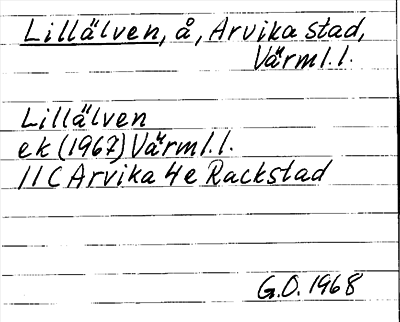 Lillälven, å, Arvika stad,
Värml.l.
Lillälven
ek (1967) Värml.l.
11C Arvika 4e Rackstad
G.O. 1968